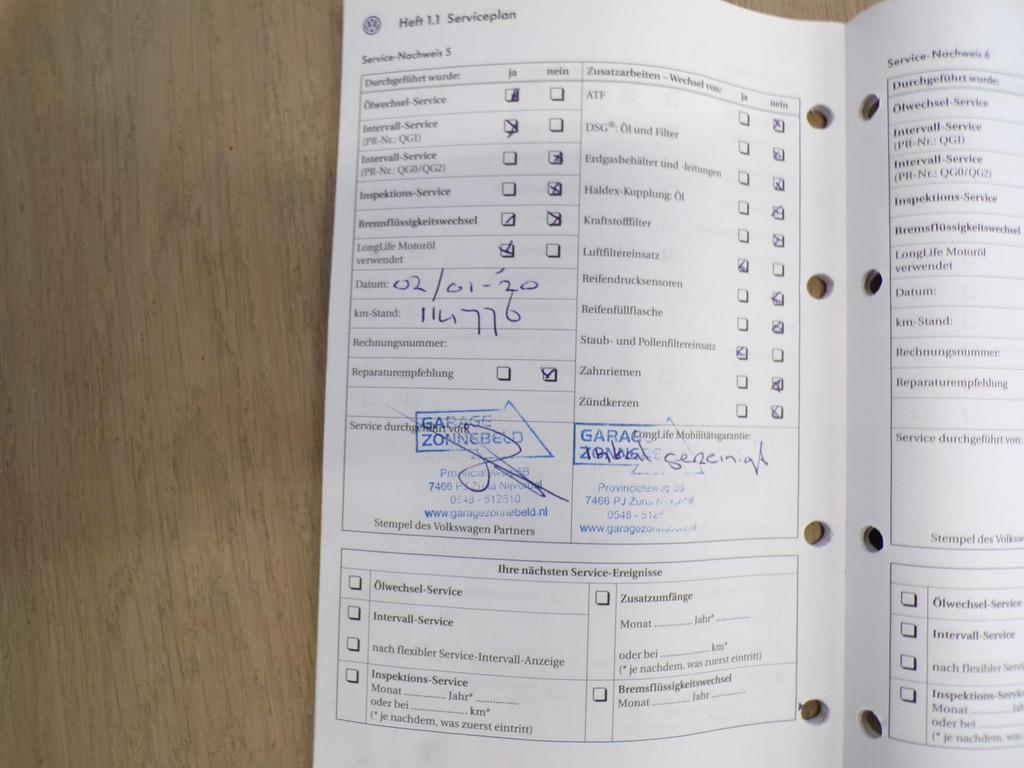 Heft 1.1 Serviceplan
Service-Nachweis 5
Durchgeführt wurde: ja nein
Ölwechsel-Service
Intervall-Service
(PR-Nr.: QG1)
Intervall-Service
(PR-Nr.: QG0/QG2)
Inspektions-Service
Bremsflüssigkeitswechsel
LongLife Motoröl
verwendet
Datum: 02/01-'20
km-Stand: 114776
Rechnungsnummer:
Reparaturempfehlung
Service durchgeführt von:
GARAGE
ZONNEBELD
Provincialeweg 5B
7466 PJ Zuna Nijverdal
0548 - 512510
www.garagezonnebeld.nl
Stempel des Volkswagen Partners
Zusatzarbeiten – Wechsel von: ja nein
ATF
DSG®: Öl und Filter
Erdgasbehälter und -leitungen
Haldex-Kupplung: Öl
Kraftstofffilter
Luftfiltereinsatz
Reifendrucksensoren
Reifenfüllflasche
Staub- und Pollenfiltereinsatz
Zahnriemen
Zündkerzen
LongLife Mobilitätsgarantie:
GARAGE
gereinigt
Provincialeweg
7466 PJ Zuna
0548 - 512
Ihre nächsten Service-Ereignisse
Ölwechsel-Service
Intervall-Service
nach flexibler Service-Intervall-Anzeige
Inspektions-Service
Monat .............. Jahr* ..............
oder bei .................... km*
(* je nachdem, was zuerst eintritt)
Zusatzumfänge
Monat ........... Jahr* ............
oder bei .................. km*
(* je nachdem, was zuerst eintritt)
Bremsflüssigkeitswechsel
Monat ............ Jahr ............
Service-Nachweis 6
Durchgeführt wurde
Ölwechsel-Service
Intervall-Service
(PR-Nr.: QG1)
Intervall-Service
(PR-Nr.: QG0/QG2)
Inspektions-Service
Bremsflüssigkeitswechsel
LongLife Motoröl
verwendet
Datum:
km-Stand:
Rechnungsnummer:
Reparaturempfehlung
Service durchgeführt von:
Stempel des Volksw
Ölwechsel-Service
Intervall-Service
nach flexibler Servi
Inspektions-Servic
Monat ..............
oder bei ..............
(* je nachdem, was